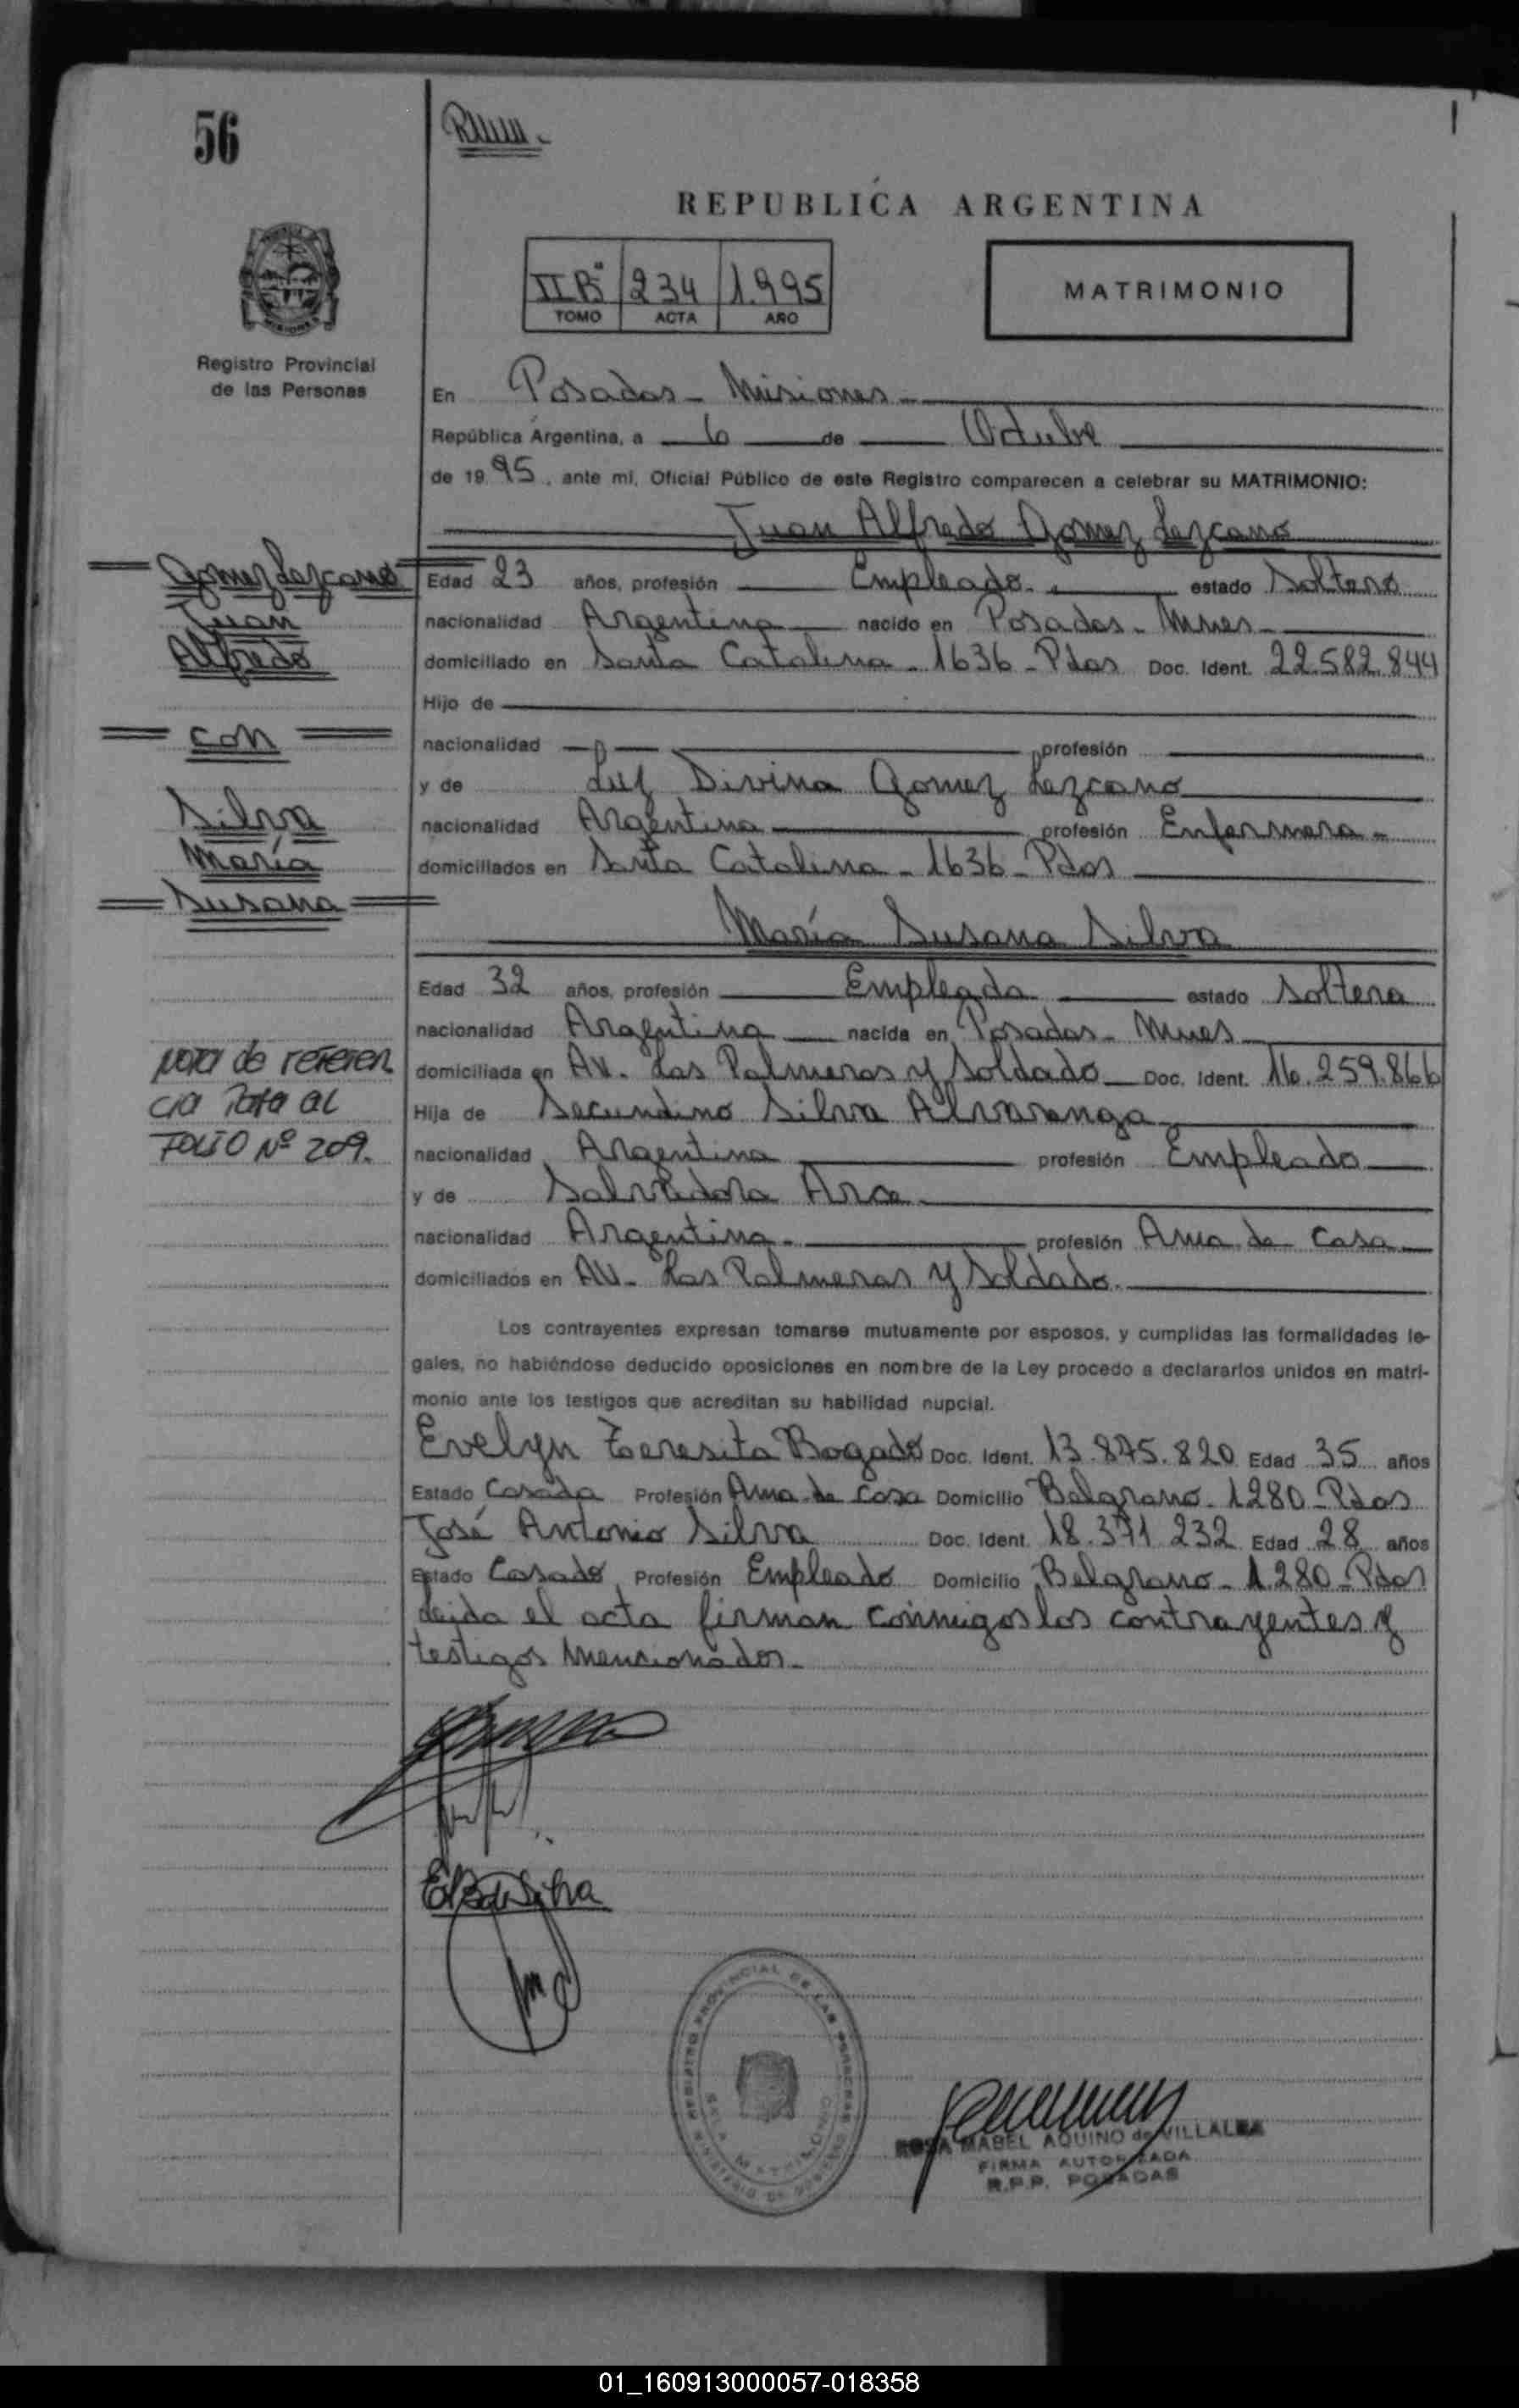 56
REPUBLICA ARGENTINA
IIBº 234 1.995
TOMO ACTA AÑO
MATRIMONIO
Registro Provincial
de las Personas
En Posadas - Misiones -
República Argentina, a 6 de Octubre
de 1995, ante mí, Oficial Público de este Registro comparecen a celebrar su MATRIMONIO:
Juan Alfredo Gomez Lezcano
Gomez Lezcano
Juan
Alfredo
con
Silva
María
Susana
Edad 23 años, profesión Empleado. estado Soltero
nacionalidad Argentina nacido en Posadas - Mnes -
domiciliado en Santa Catalina - 1636 - Pdas Doc. Ident. 22.582.844
Hijo de
nacionalidad profesión
y de Luz Divina Gomez Lezcano
nacionalidad Argentina profesión Enfermera -
domiciliados en Santa Catalina - 1636 - Pdas
María Susana Silva
Edad 32 años, profesión Empleada estado Soltera
nacionalidad Argentina nacida en Posadas - Mnes
domiciliada en Av. Las Palmeras y Soldado Doc. Ident. 16.259.866
Hija de Secundino Silva Alvarenga
nacionalidad Argentina profesión Empleado
y de Salvadora Arce
nacionalidad Argentina - profesión Ama de Casa
domiciliados en AV - Las Palmeras y Soldado.
NOTA de REFEREN
CIA PASA AL
FOLIO Nº 209.
Los contrayentes expresan tomarse mutuamente por esposos, y cumplidas las formalidades le-
gales, no habiéndose deducido oposiciones en nombre de la Ley procedo a declararlos unidos en matri-
monio ante los testigos que acreditan su habilidad nupcial.
Evelyn Teresita Bogado Doc. Ident. 13.875.820 Edad 35 años
Estado Casada Profesión Ama de Casa Domicilio Belgrano - 1280 - Pdas
José Antonio Silva Doc. Ident. 18.371.232 Edad 28 años
Estado Casado Profesión Empleado Domicilio Belgrano - 1.280 - Pdas
Leida el acta firman conmigo los contrayentes y
testigos mencionados -
REGISTRO PROVINCIAL DE LAS PERSONAS
SALA MATRIMONIO
MINISTERIO DE GOBIERNO
ROSA MABEL AQUINO de VILLALBA
FIRMA AUTORIZADA
R.P.P. POSADAS
01_160913000057-018358